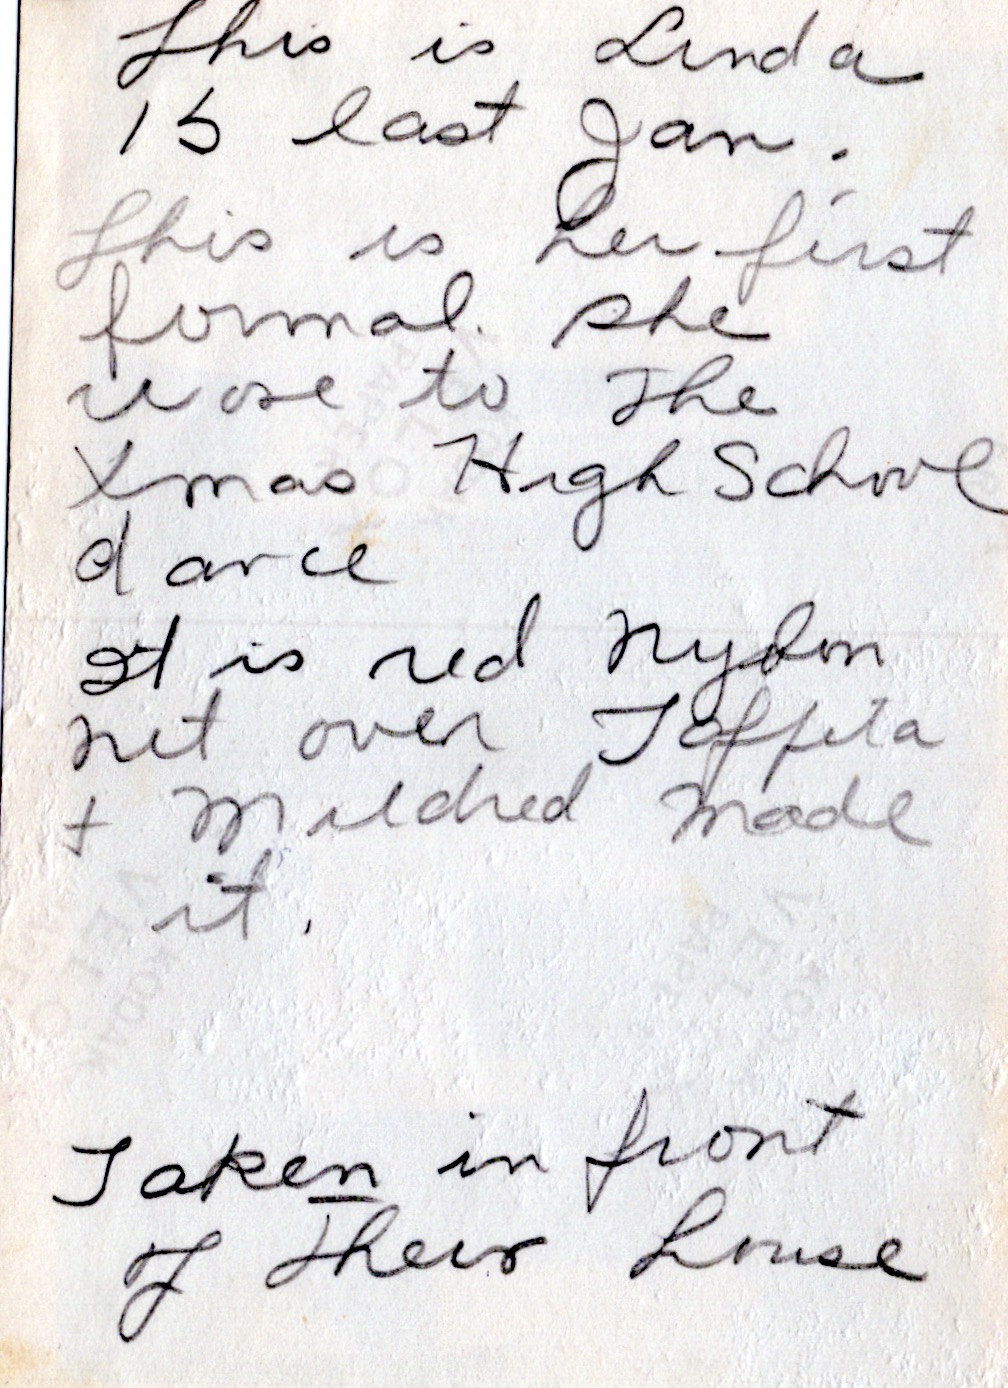 This is Linda
15 last Jan.
This is her first
formal. She
wose to The
Xmas High School
dance
It is red Nylon
net over Taffeta
+ Mildred made
it.
Taken in front
of Their house
VELOX
KODAK